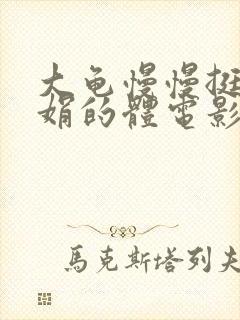 大龟慢慢挺
娟的體電影
馬克斯塔列夫